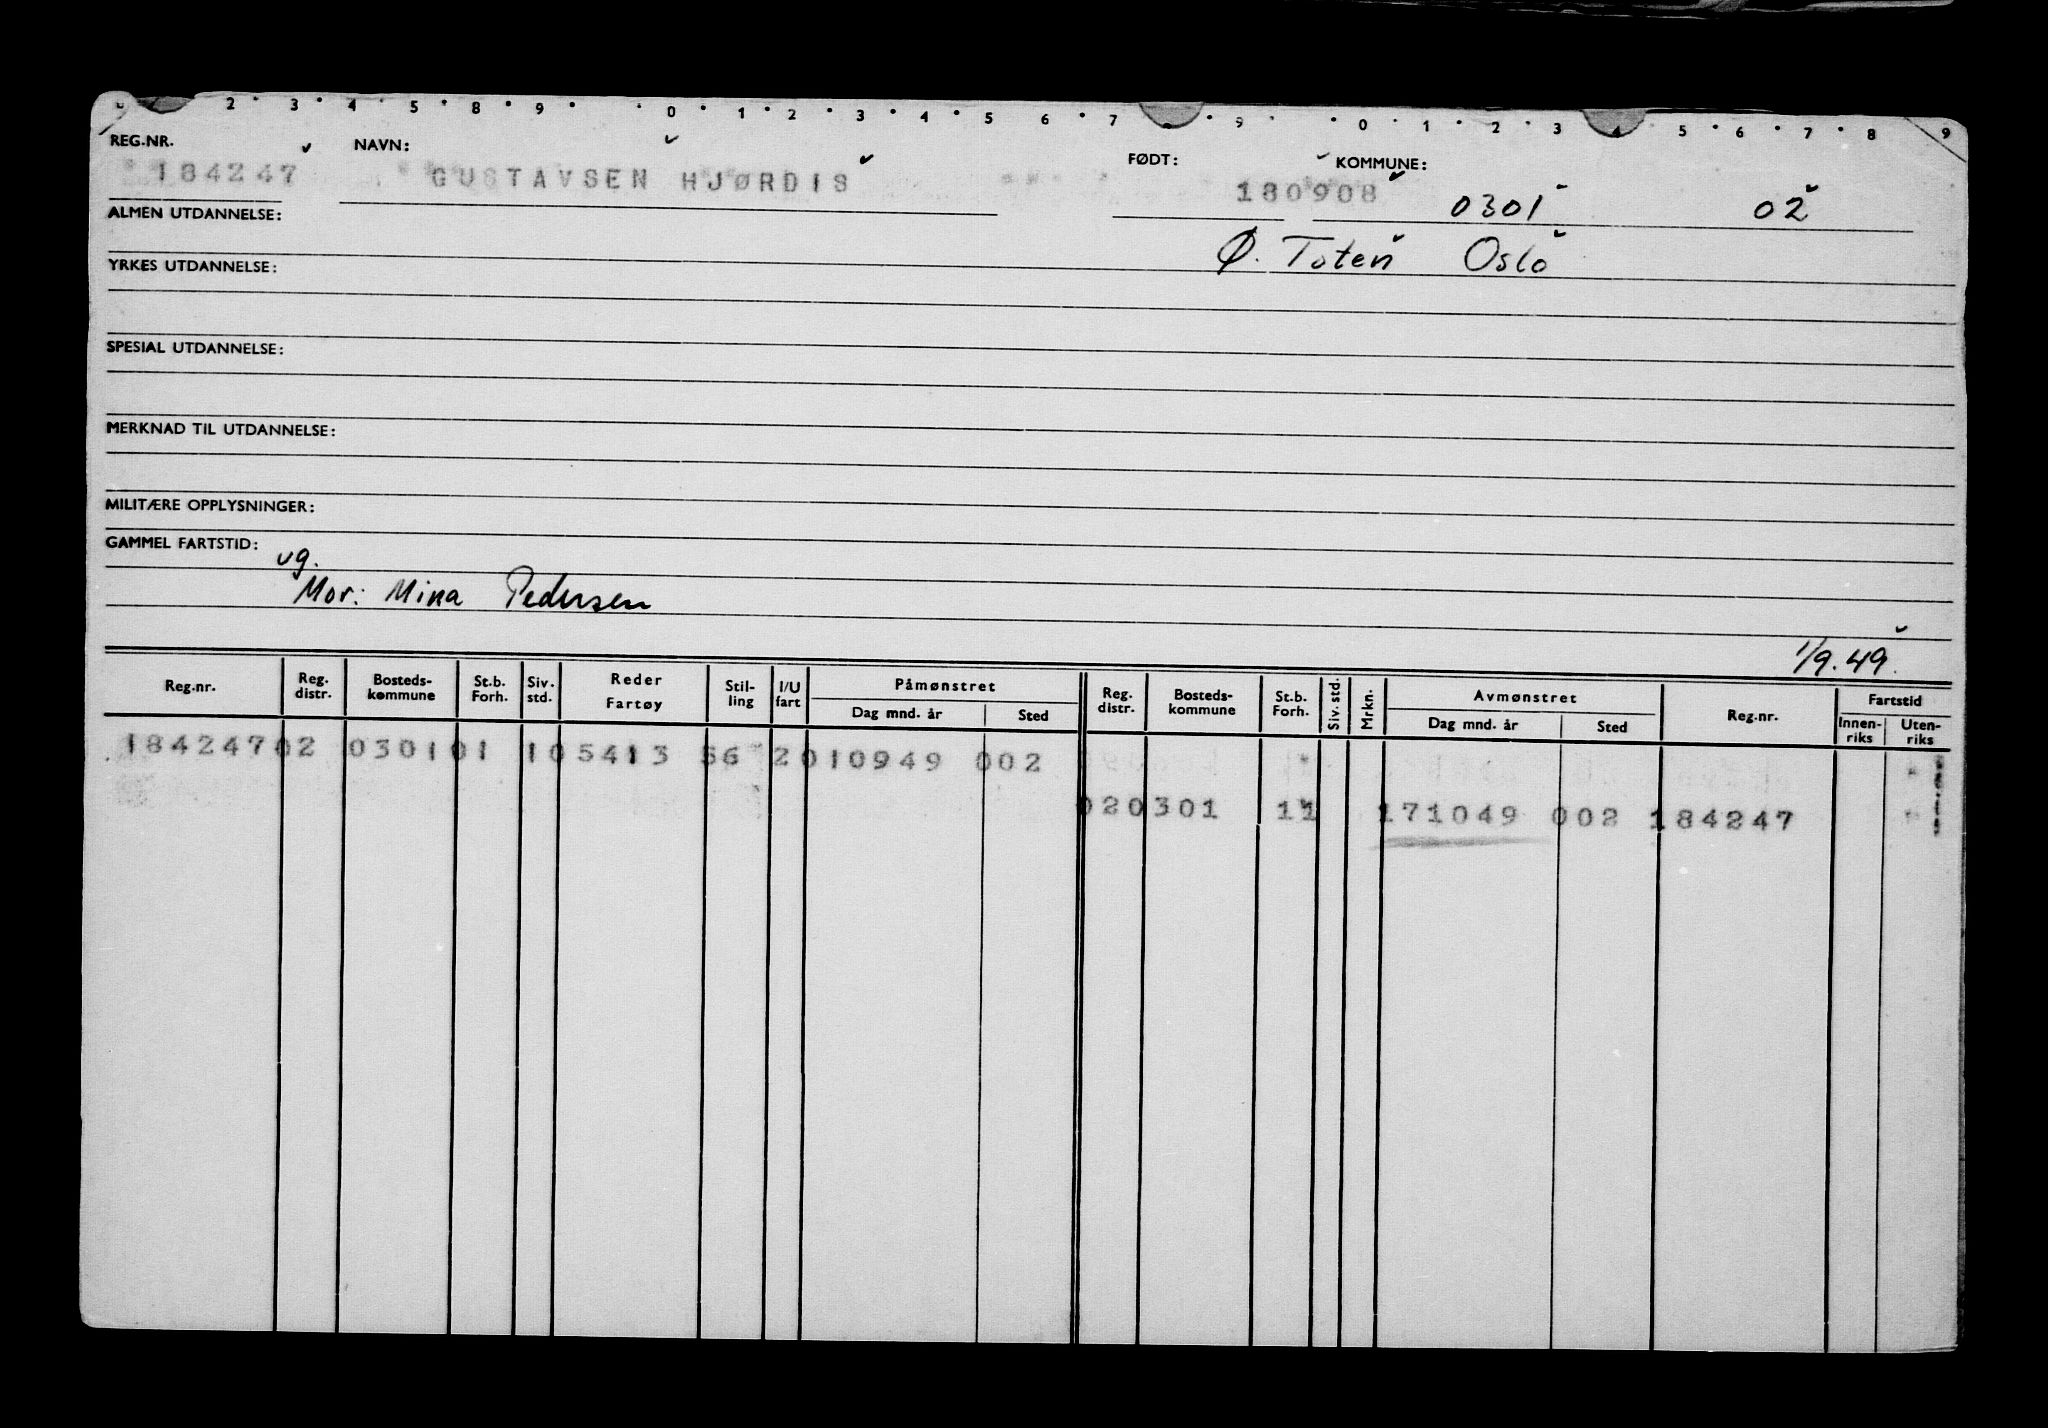 2 3 4 5 8 9 0 1 2 3 4 5 6 7 9 0 1 2 3 4 5 6 7 8 9
REG.NR. NAVN: FØDT: KOMMUNE:
184247 GUSTAVSEN HJØRDIS 180908 0301 02
ALMEN UTDANNELSE:
Ø. Toten Oslo
YRKES UTDANNELSE:
SPESIAL UTDANNELSE:
MERKNAD TIL UTDANNELSE:
MILITÆRE OPPLYSNINGER:
GAMMEL FARTSTID:
vg.
Mor: Mina Pedersen
1/9.49.
Reg.nr. Reg. distr. Bosteds- kommune St.b. Forh. Siv. std. Reder Fartøy Stil- ling I/U fart Påmønstret Dag mnd. år Sted Reg. distr. Bosteds- kommune St.b. Forh. Siv. std. Mrkn. Avmønstret Dag mnd. år Sted Reg.nr. Fartstid Innen- riks Uten- riks
184247 02 0301 01 1 05413 56 2 010949 002
02 0301 11 171049 002 184247